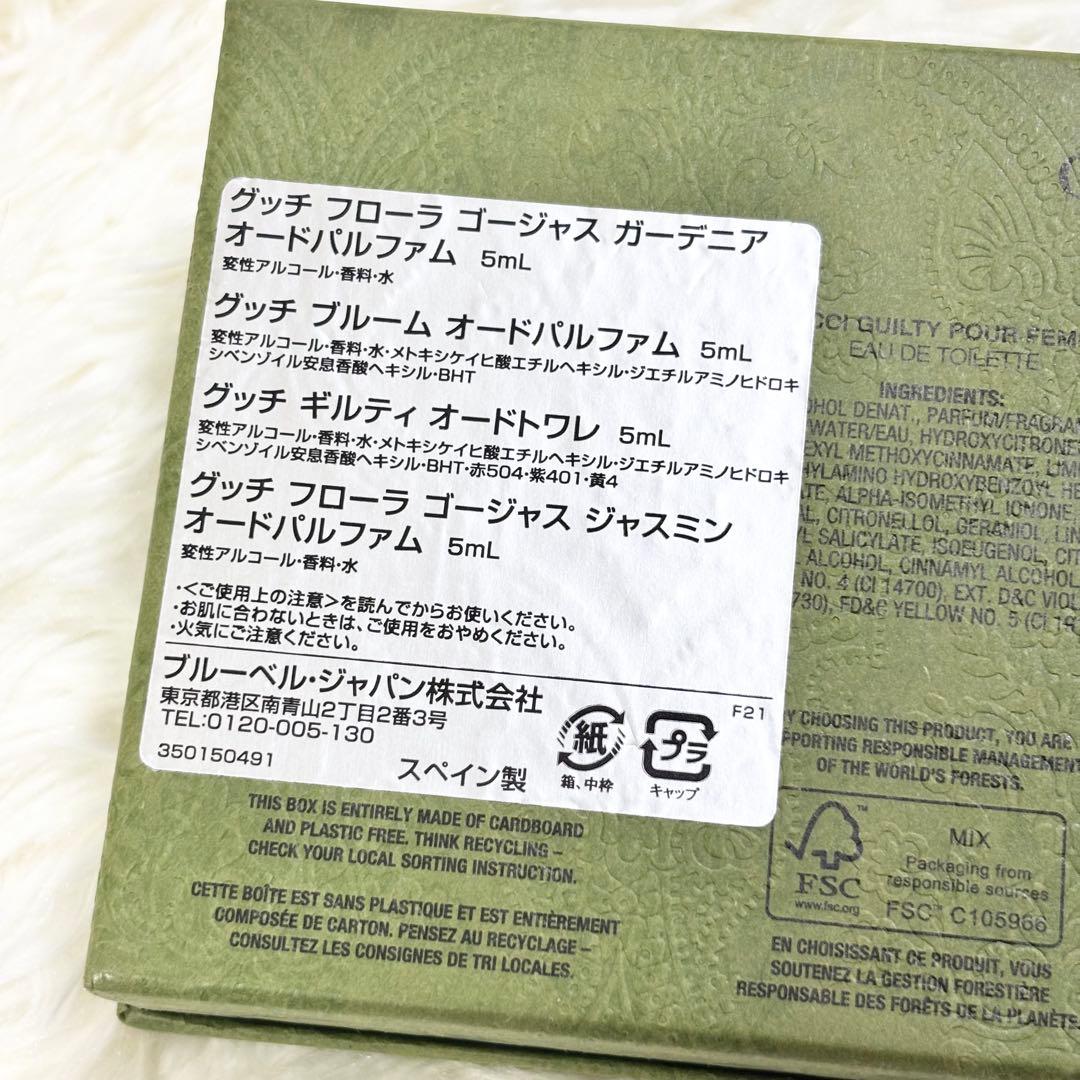 グッチ フローラ ゴージャス ガーデニア
オードパルファム 5mL
変性アルコール・香料・水
グッチ ブルーム オードパルファム 5mL
変性アルコール・香料・水・メトキシケイヒ酸エチルヘキシル・ジエチルアミノヒドロキ
シベンゾイル安息香酸ヘキシル・BHT
グッチ ギルティ オードトワレ 5mL
変性アルコール・香料・水・メトキシケイヒ酸エチルヘキシル・ジエチルアミノヒドロキ
シベンゾイル安息香酸ヘキシル・BHT・赤504・紫401・黄4
グッチ フローラ ゴージャス ジャスミン
オードパルファム 5mL
変性アルコール・香料・水
・<ご使用上の注意>を読んでからお使いください。
・お肌に合わないときは、ご使用をおやめください。
・火気にご注意ください。
ブルーベル・ジャパン株式会社
東京都港区南青山2丁目2番3号
TEL:0120-005-130
350150491
スペイン製
F21
紙
箱、中枠
プラ
キャップ
THIS BOX IS ENTIRELY MADE OF CARDBOARD
AND PLASTIC FREE. THINK RECYCLING –
CHECK YOUR LOCAL SORTING INSTRUCTION.
CETTE BOÎTE EST SANS PLASTIQUE ET EST ENTIÈREMENT
COMPOSÉE DE CARTON. PENSEZ AU RECYCLAGE –
CONSULTEZ LES CONSIGNES DE TRI LOCALES.
GUILTY POUR
EAU DE TOILETTE
INGREDIENTS:
DENAT., PARFUM/FRAGRAN
WATER/EAU, HYDROXYCITRONE
METHOXYCINNAMATE, LIM
HYDROXYBENZOYL HE
ALPHA-ISOMETHYL IONONE
CITRONELLOL, GERANIOL, LIN
SALICYLATE, ISOEUGENOL, CIT
ALCOHOL, CINNAMYL ALCOHOL
NO. 4 (CI 14700), EXT. D&C VIOL
730), FD&C YELLOW NO. 5 (CI 19
BY CHOOSING THIS PRODUCT, YOU ARE
RESPONSIBLE MANAGEMENT
OF THE WORLD'S FORESTS.
FSC
www.fsc.org
MIX
Packaging from
responsible sources
FSC™ C105966
EN CHOISISSANT CE PRODUIT, VOUS
SOUTENEZ LA GESTION FORESTIÈRE
RESPONSABLE DES FORÊTS DE LA PLANÈTE.